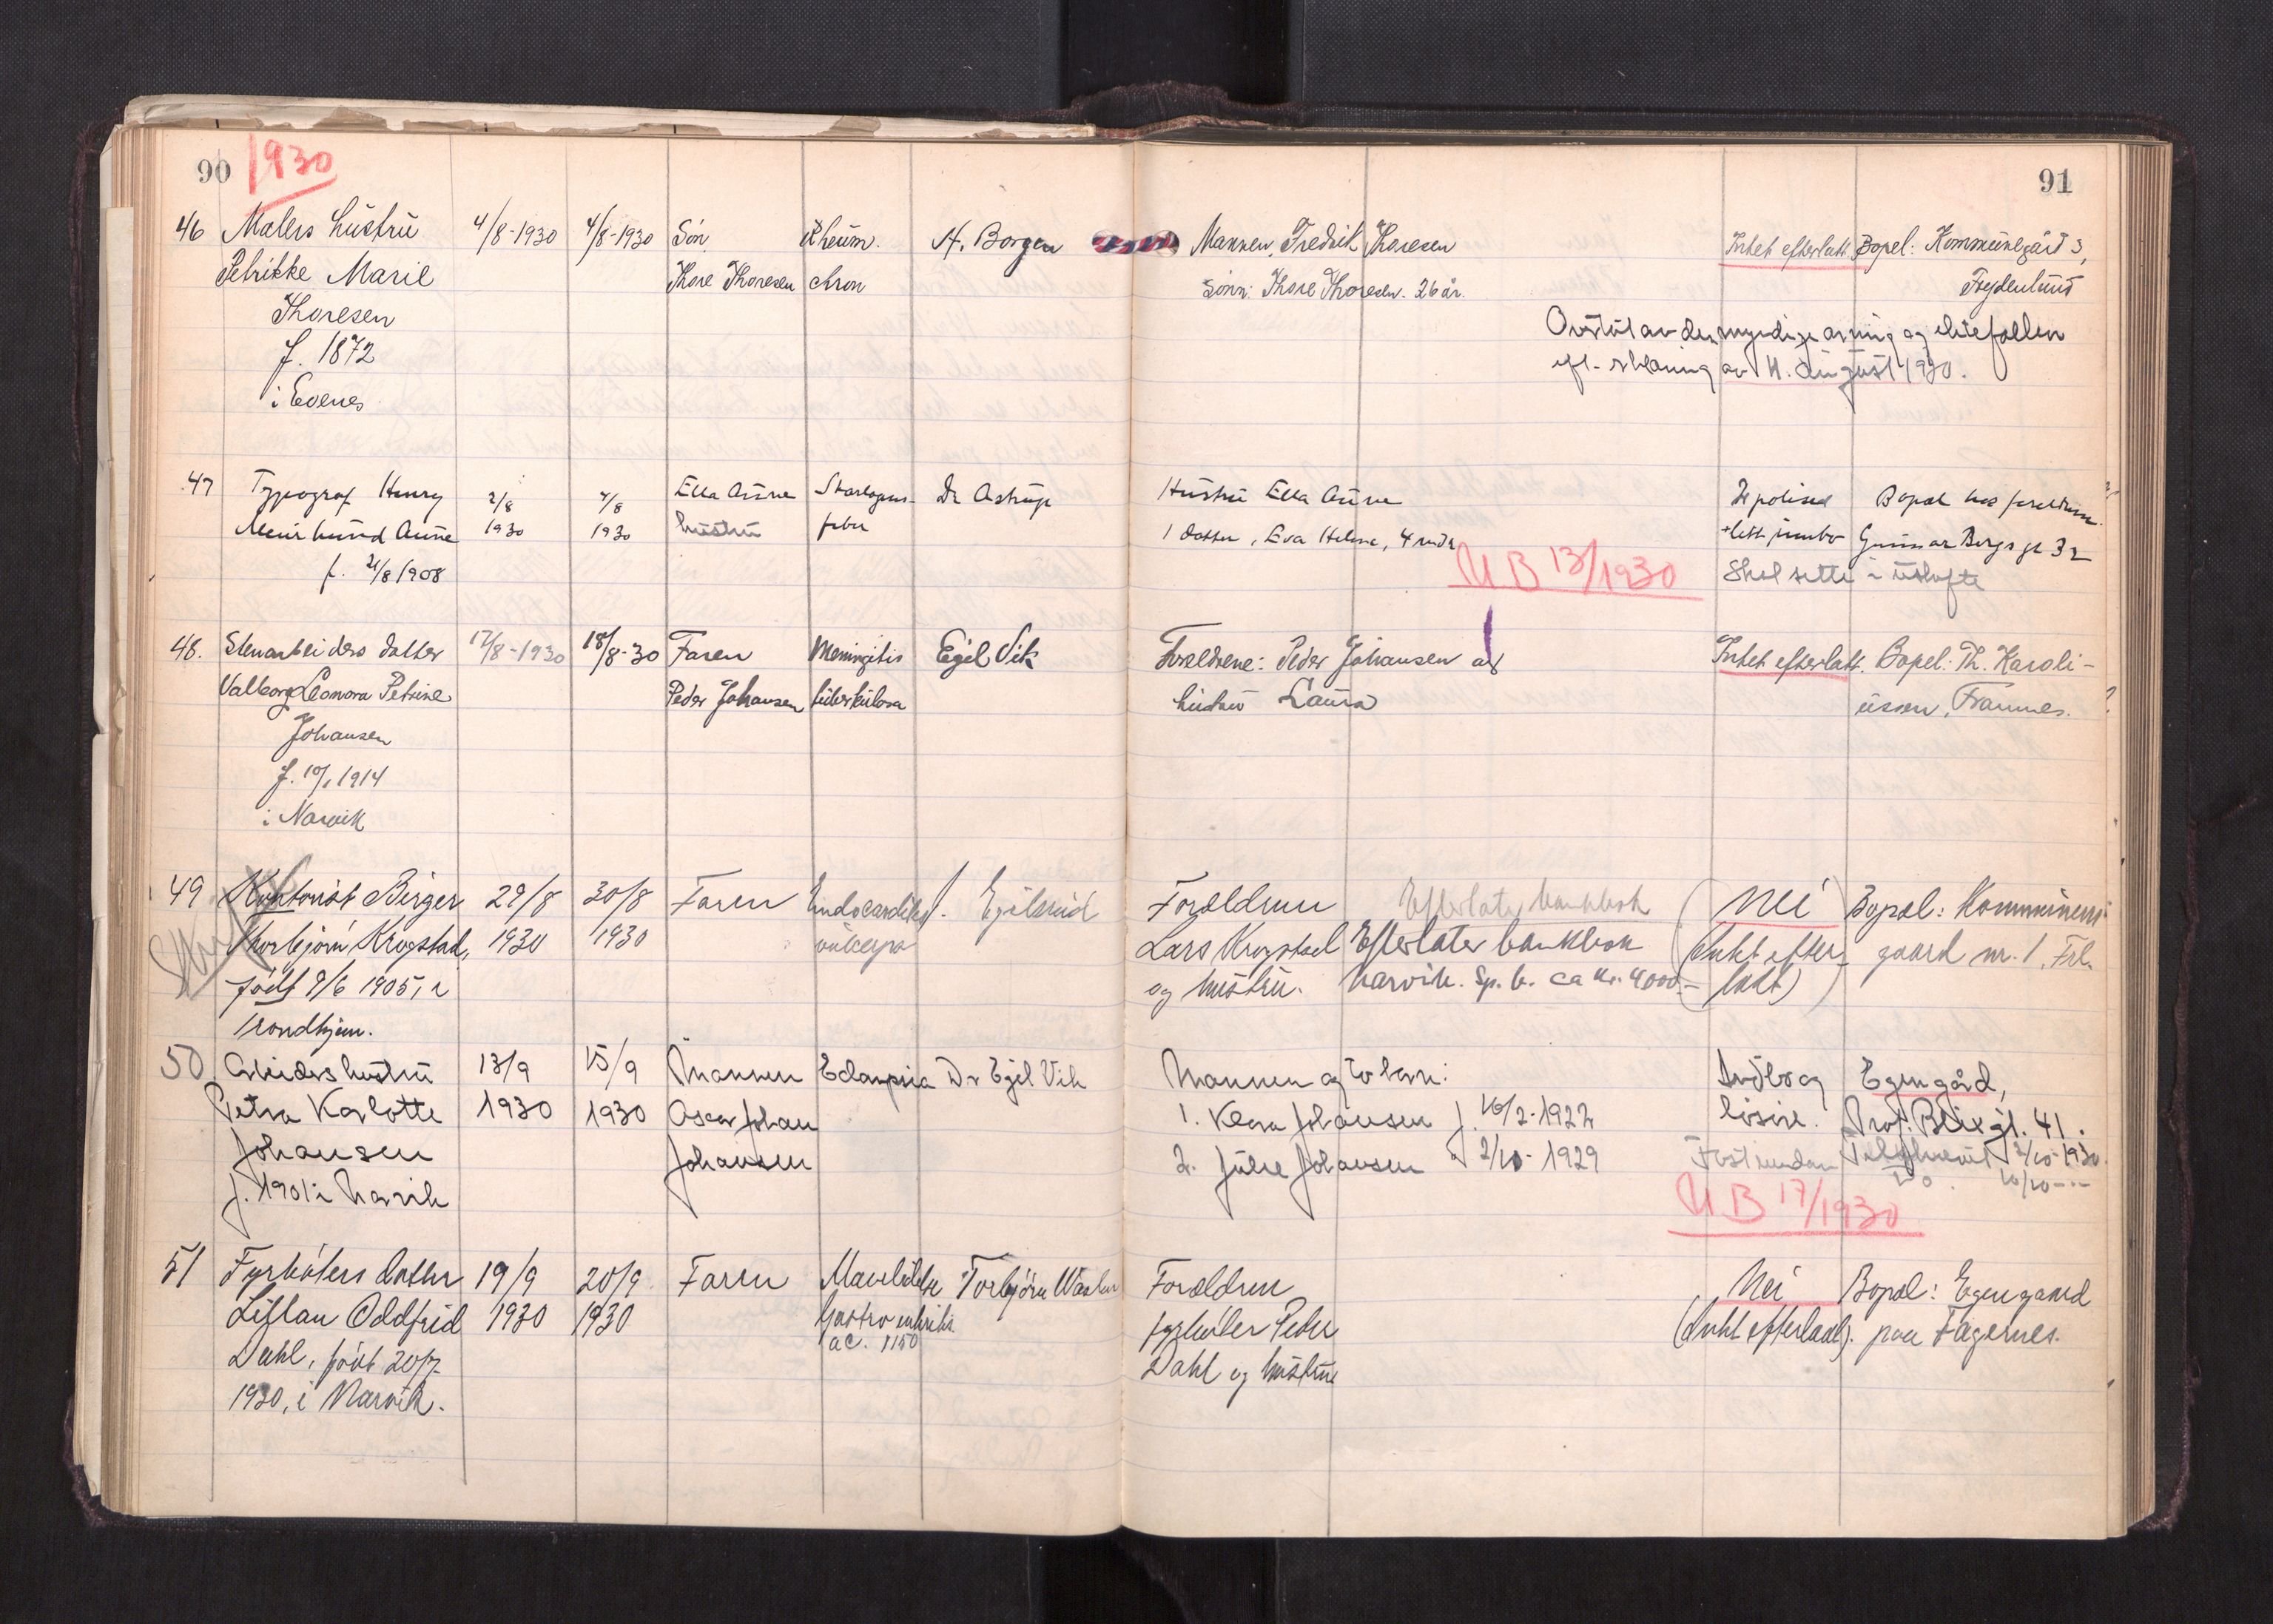 90 1930
91
46 Malers hustru 4/8-1930 4/8-1930 Søn Rheum. H. Borgen Mannen, Fredrik Thoresen Intet efterlatt. Bopel: Kommunegård 3,
Petrikke Marie Thore Thoresen chron Sønn: Thore Thoresen. 26 år. Frydenlund
Thoresen
f. 1872
av 4. august 1930.
i Evenes
47 Typograf Henry 2/8 4/8 Ella Aune Skarlagens- Dr Astrup Hustru Ella Aune Bopæl hos foreldrene
Aune 1930 1930 hustru feber 1 datter, Eva Helene, 4 mndr Gunnar Bergs gt 32
f. 21/8 1908 UB 13/1930 Skal sitte i uskifte
48. Stenarbeiders datter 17/8-1930 18/8-30 Faren Meningitis Egil Vik Foreldrene: Peder Johansen og Intet efterlatt. Bopel: Th. Karoli-
Valborg Leonora Petrine Peder Johansen tuberkulosa hustru Laura ussen, Framnes. ?
Johansen
f. 10/1 1914
i Narvik
49 Kontorist Birger 29/8 30/8 Faren Endocarditis Foreldrene Efterlater bankbok (Nei Bopæl: Kommunens
Thorbjørn Krogstad, 1930 1930 Lars Krogstad Efterlater bankbok (Intet efter- gaard nr. 1, Frl.
født 9/6 1905, i og hustru. Narvik. Sp. b. ca kr. 4000.- latt)
Trondhjem.
50 Arbeiders hustru 13/9 15/9 Mannen Eclampsia Dr Egil Vik Mannen og to barn: Indbo og Egen gård,
Petra Karlotte 1930 1930 Oscar Johan 1. Klara Johansen f. 10/2-1922 løsøre. Prof. Blix gt. 41.
Johansen Johansen 2. Julie Johansen 2/10-1929 2/10-1930
f. 1901 i Narvik UB 17/1930
51 Fyrbøters datter 19/9 20/9 Faren Foreldrene Nei Bopæl: Egen gaard
Liflan Oddfrid 1930 1930 Gastro enteritis fyrbøter Peder (Intet efterlaat). paa Fagernes.
Dahl, født 20/7- ac. 1150 Dahl og hustru
1930, i Narvik.